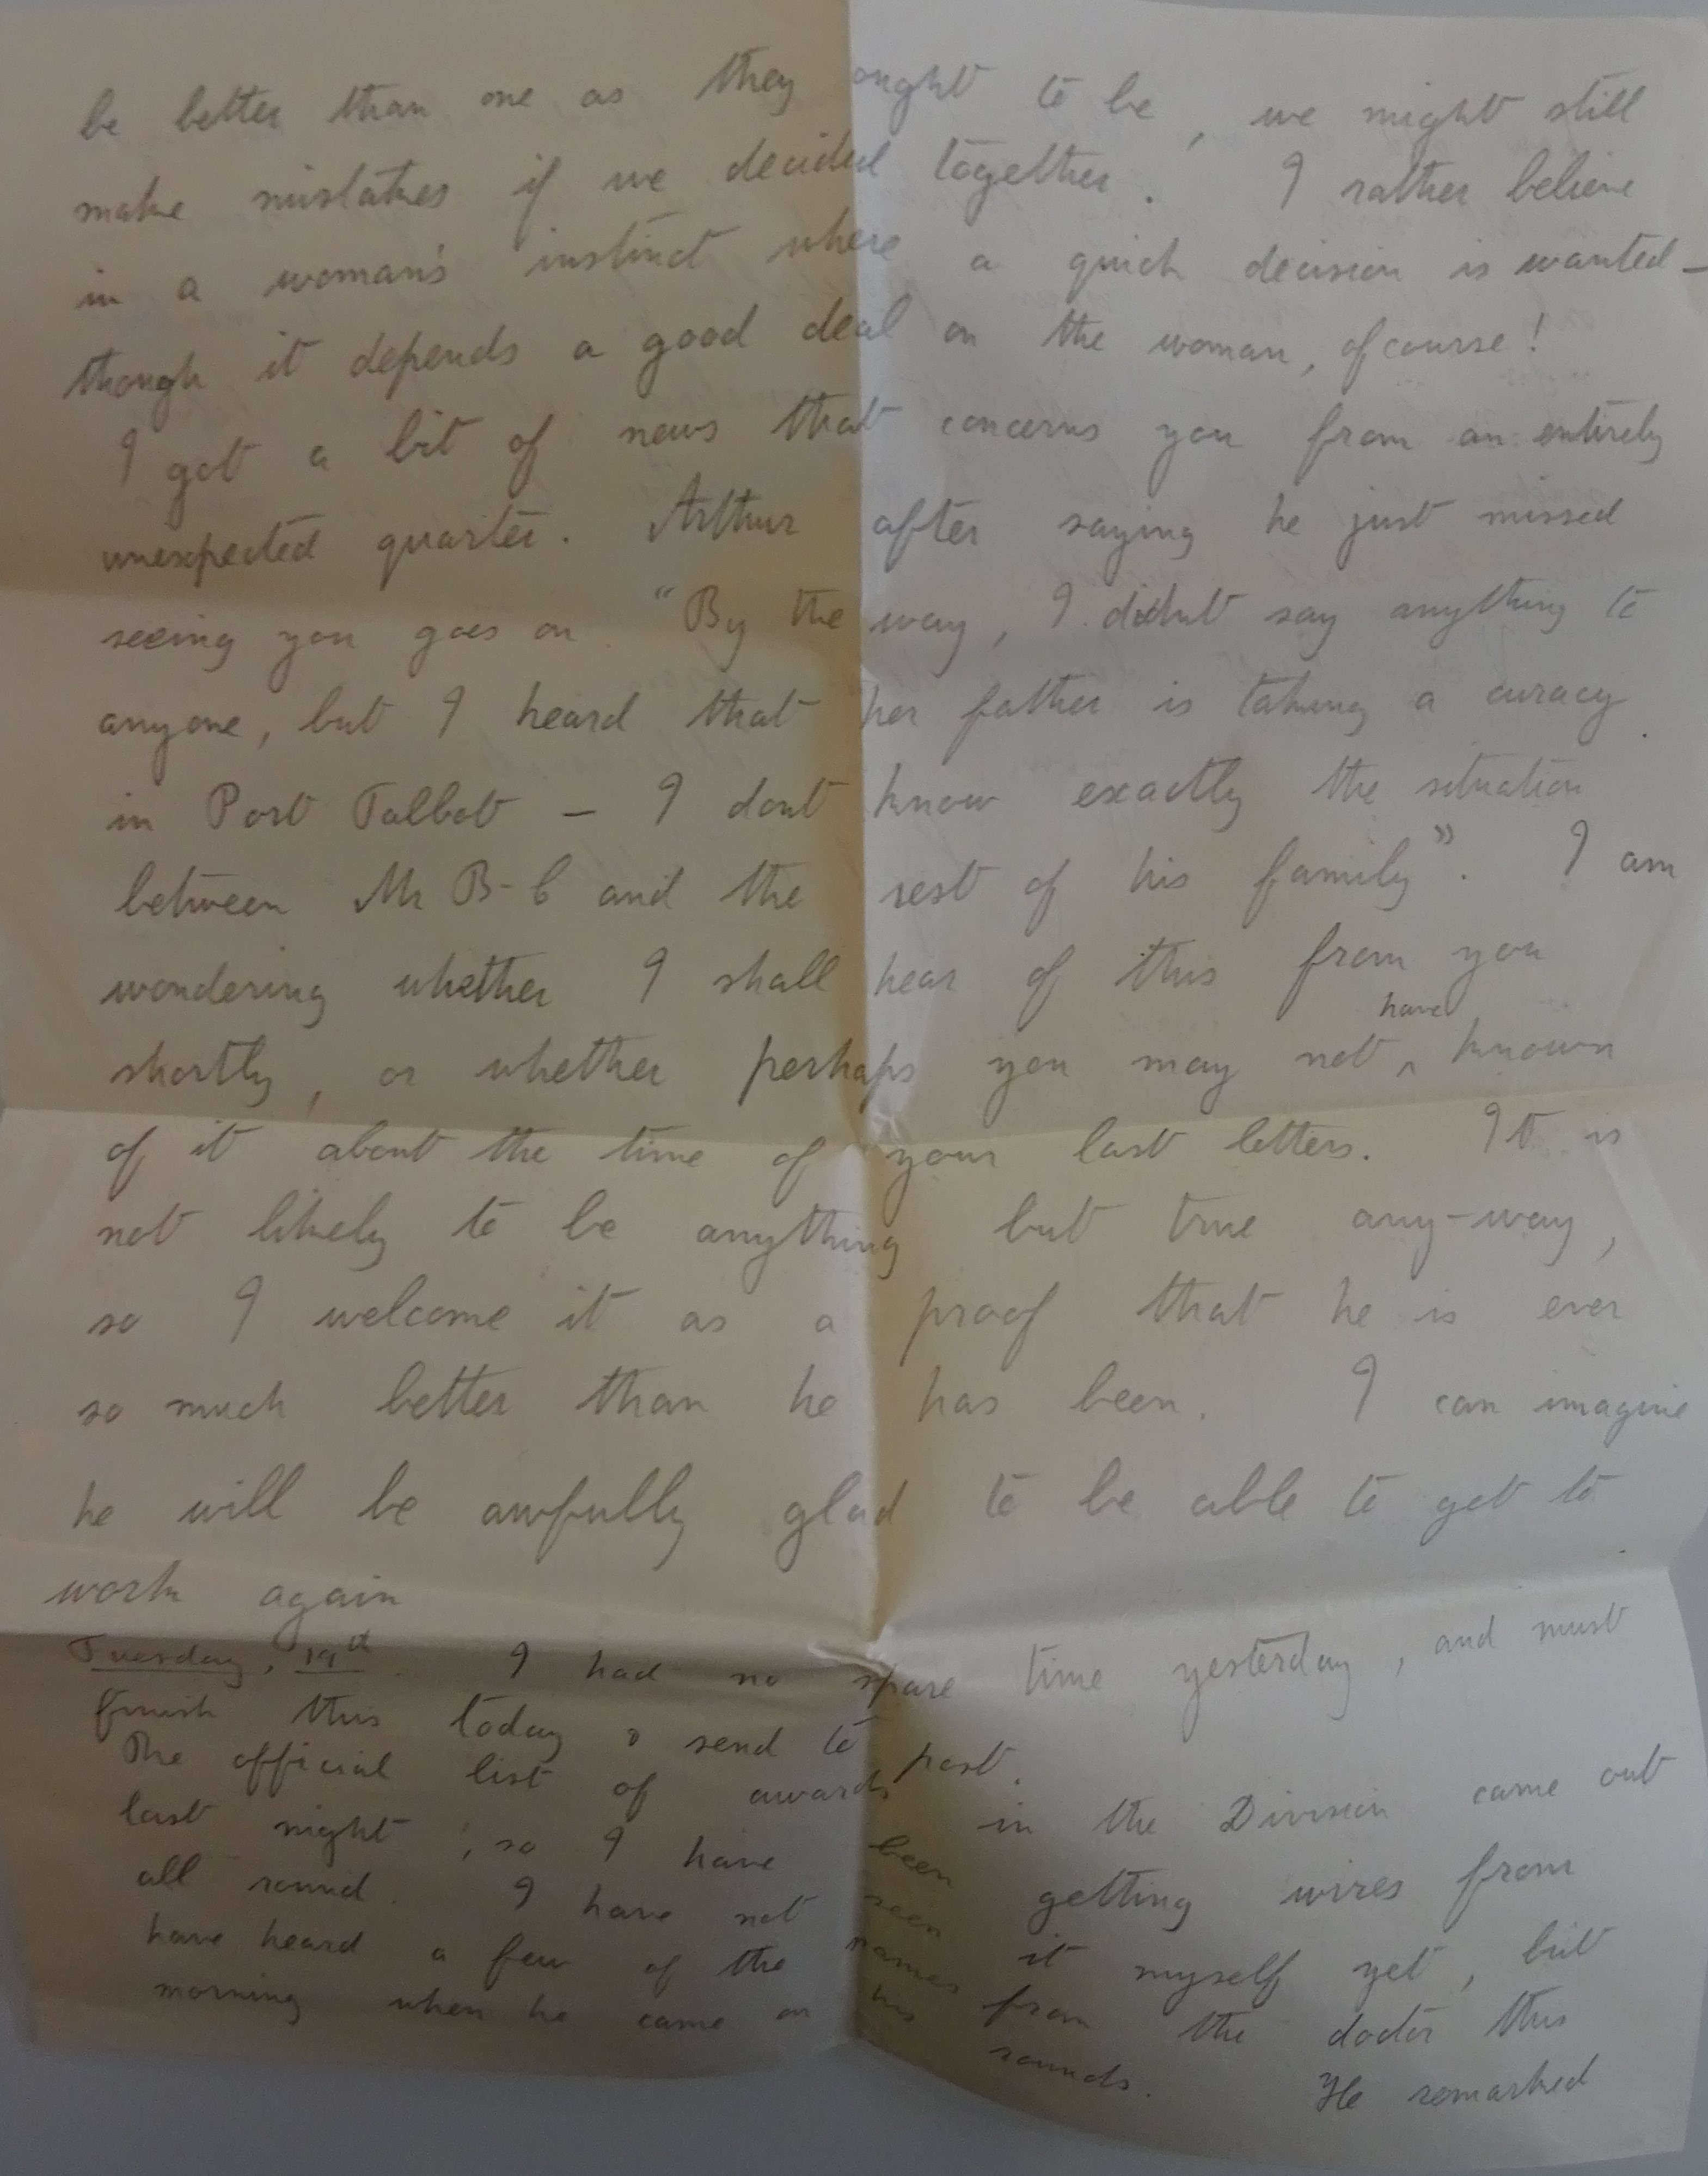 be better than one as they ought to be, we might still
make mistakes if we decided together. I rather believe
in a woman's instinct where a quick decision is wanted –
though it depends a good deal on the woman, of course!
I got a bit of news that concerns you from an entirely
unexpected quarter. Arthur after saying he just missed
seeing you goes on "By the way, I didnt say anything to
anyone, but I heard that her father is taking a curacy
in Port Talbot – I dont know exactly the situation
between Mr B-C and the rest of his family". I am
wondering whether I shall hear of this from you
shortly, or whether perhaps you may not have known
of it about the time of your last letters. It is
not likely to be anything but true any-way,
so I welcome it as a proof that he is ever
so much better than he has been. I can imagine
he will be awfully glad to be able to get to
work again
Tuesday, 19th. I had no spare time yesterday, and must
finish this today & send to post.
The official list of awards in the Division came out
last night, so I have been getting wires from
all round. I have not seen it myself yet, but
have heard a few of the names from the doctor this
morning when he came on his rounds. He remarked